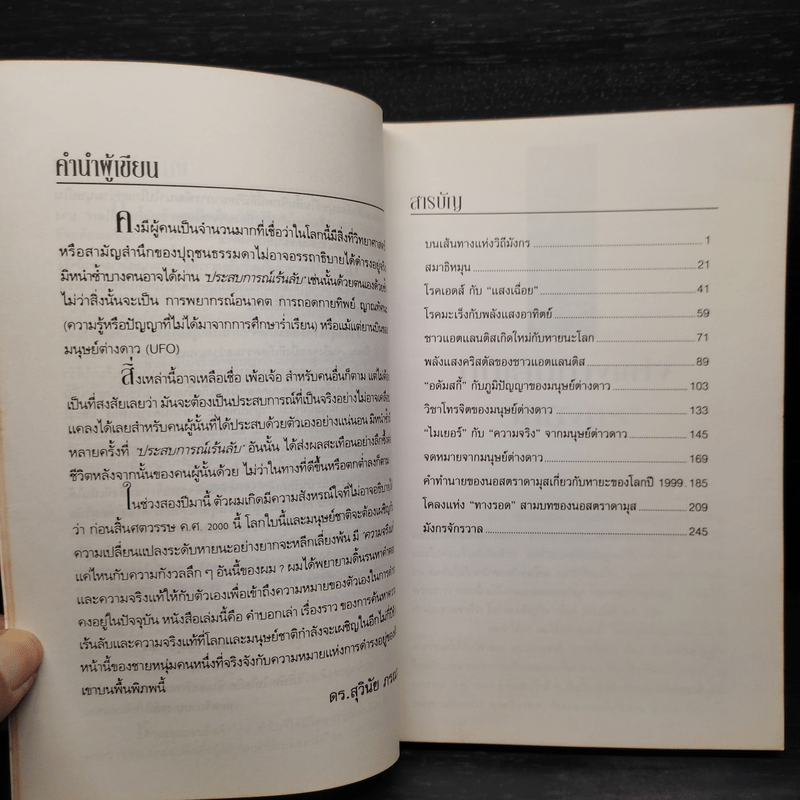 คำนำผู้เขียน
คงมีผู้คนเป็นจำนวนมากที่เชื่อว่าในโลกนี้มีสิ่งที่วิทยาศาสตร์
หรือสามัญสำนึกของปุถุชนธรรมดาไม่อาจอรรถาธิบายได้ดำรงอยู่จริง
มิหนำซ้ำบางคนอาจได้ผ่าน "ประสบการณ์เร้นลับ" เช่นนั้นด้วยตนเองด้วยซ้ำ
ไม่ว่าสิ่งนั้นจะเป็น การพยากรณ์อนาคต การถอดกายทิพย์
(ความรู้หรือปัญญาที่ไม่ได้มาจากการศึกษาร่ำเรียน) หรือแม้แต่ยานบินของ
มนุษย์ต่างดาว (UFO)
สิ่งเหล่านี้อาจเหลือเชื่อ เพ้อเจ้อ สำหรับคนอื่นก็ตาม แต่ไม่ต้อง
เป็นที่สงสัยเลยว่า มันจะต้องเป็นประสบการณ์ที่เป็นจริงอย่างไม่อาจเคลือบ
แคลงได้เลยสำหรับคนผู้นั้นที่ได้ประสบด้วยตัวเองอย่างแน่นอน มิหนำซ้ำ
หลายครั้งที่ "ประสบการณ์เร้นลับ" อันนั้น ได้ส่งผลสะเทือนอย่างลึกซึ้งต่อ
ชีวิตหลังจากนั้นของคนผู้นั้นด้วย ไม่ว่าในทางที่ดีขึ้นหรือตกต่ำลงก็ตาม
ในช่วงสองปีมานี้ ตัวผมเกิดมีความสังหรณ์ใจที่ไม่อาจอธิบายได้
ว่า ก่อนสิ้นศตวรรษ ค.ศ. 2000 นี้ โลกใบนี้และมนุษย์ชาติจะต้องเผชิญกับ
ความเปลี่ยนแปลงระดับหายนะอย่างยากจะหลีกเลี่ยงพ้น มี "ความจริง"
แค่ไหนกับความกังวลลึก ๆ อันนี้ของผม ? ผมได้พยายามดิ้นรนหาคำตอบ
และความจริงแท้ให้กับตัวเองเพื่อเข้าถึงความหมายของตัวเองในการดำรง
คงอยู่ในปัจจุบัน หนังสือเล่มนี้คือ คำบอกเล่า เรื่องราว ของการค้นหาความ
เร้นลับและความจริงแท้ที่โลกและมนุษย์ชาติกำลังจะเผชิญในอีกไม่กี่ปีข้าง
หน้านี้ของชายหนุ่มคนหนึ่งที่จริงจังกับความหมายแห่งการดำรงอยู่ของ
เขาบนพื้นพิภพนี้
ดร.สุวินัย
สารบัญ
บนเส้นทางแห่งวิถีมังกร 1
สมาธิหมุน 21
โรคเอดส์ กับ "แสงเฉื่อย" 41
โรคมะเร็งกับพลังแสงอาทิตย์ 59
ชาวแอตแลนติสเกิดใหม่กับหายนะโลก 71
พลังแสงคริสตัลของชาวแอตแลนติส 89
"อดัมสกี้" กับภูมิปัญญาของมนุษย์ต่างดาว 103
วิชาโทรจิตของมนุษย์ต่างดาว 133
"ไมเยอร์" กับ "ความจริง" จากมนุษย์ต่างดาว 145
จดหมายจากมนุษย์ต่างดาว 169
คำทำนายของนอสตราดามุสเกี่ยวกับหายะของโลกปี 1999 . 185
โคลงแห่ง "ทางรอด" สามบทของนอสตราดามุส 209
มังกรจักรวาล 245